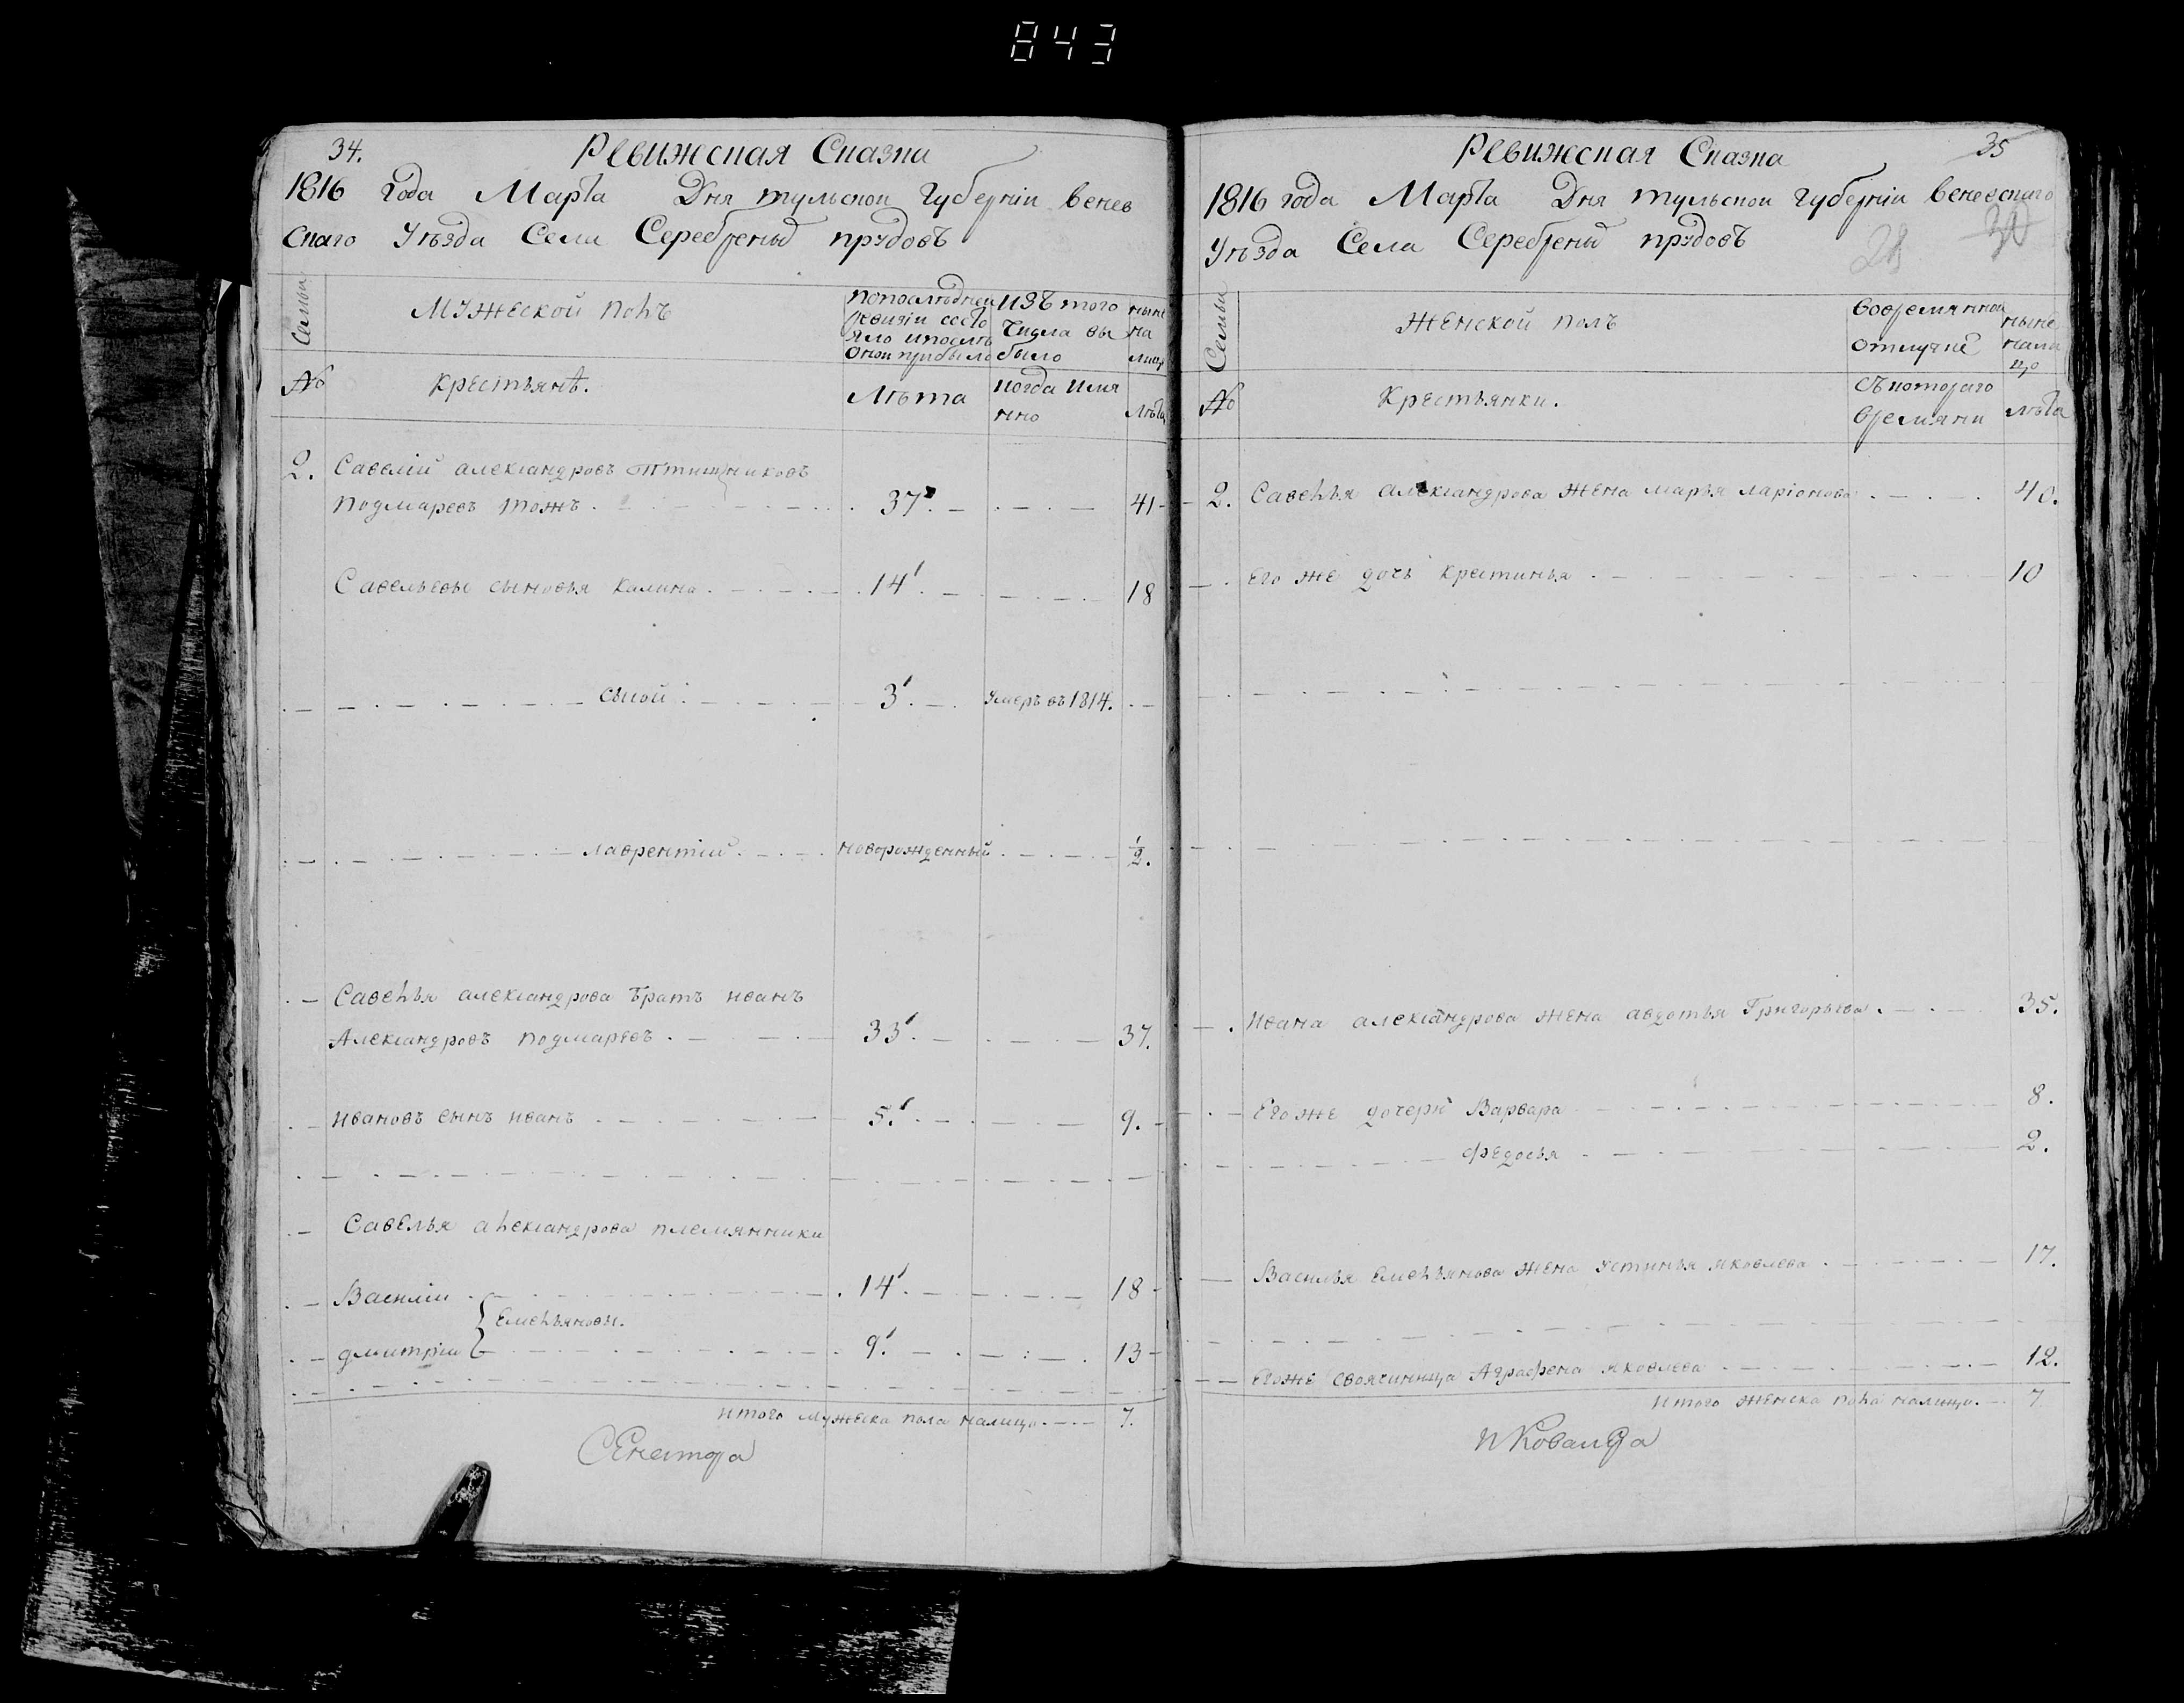 843
34.
Ревижская Сказка
1816 года Марта Дня тульской губернiи венев
скаго Уѣзда Села Серебреныхъ прудовъ
Семьи
Мужеской полъ
по последнеи
ревизiи состо
яло и после
онои прибыло
изъ того
числа вы
было
ныне
на
лицо
№
крестьянѣ.
Лѣта
когда имя
нно
лѣта
2. Савелiй александровъ Птишниковъ
подмаревъ тожъ. 37. 41
Савельевы сыновья калина 14 18
сысой 3 умеръ въ 1814.
лаврентiй новорожденный 1/2.
Савелья александрова братъ иванъ
Александровъ подмаревъ 33 37.
ивановъ сынъ иванъ 5. 9.
Савелья александрова племянники
Василiи 14 18
Емельяновы.
дмитрiи 9. 13
итого мужеска пола налицо 7.
35
Ревижская Сказка
1816 года Марта Дня тульской губернiи веневскаго
Уѣзда Села Серебреныхъ прудовъ
28 30
Семьи
Женской полъ
во времянной
отлучке
ныне
нали
цо
№
Крестьянки.
съ котораго
времяни
лѣта
2. Савелья александрова жена марья ларiонова 40.
его же дочь крестинья 10
ивана александрова жена авдотья Григорьева 35.
Его же дочери Варвара 8.
федосья 2.
Василья Емельянова жена устинья яковлева 17.
Егоже своячинница Аграфена яковлева 12.
итого женска пола налицо. 7